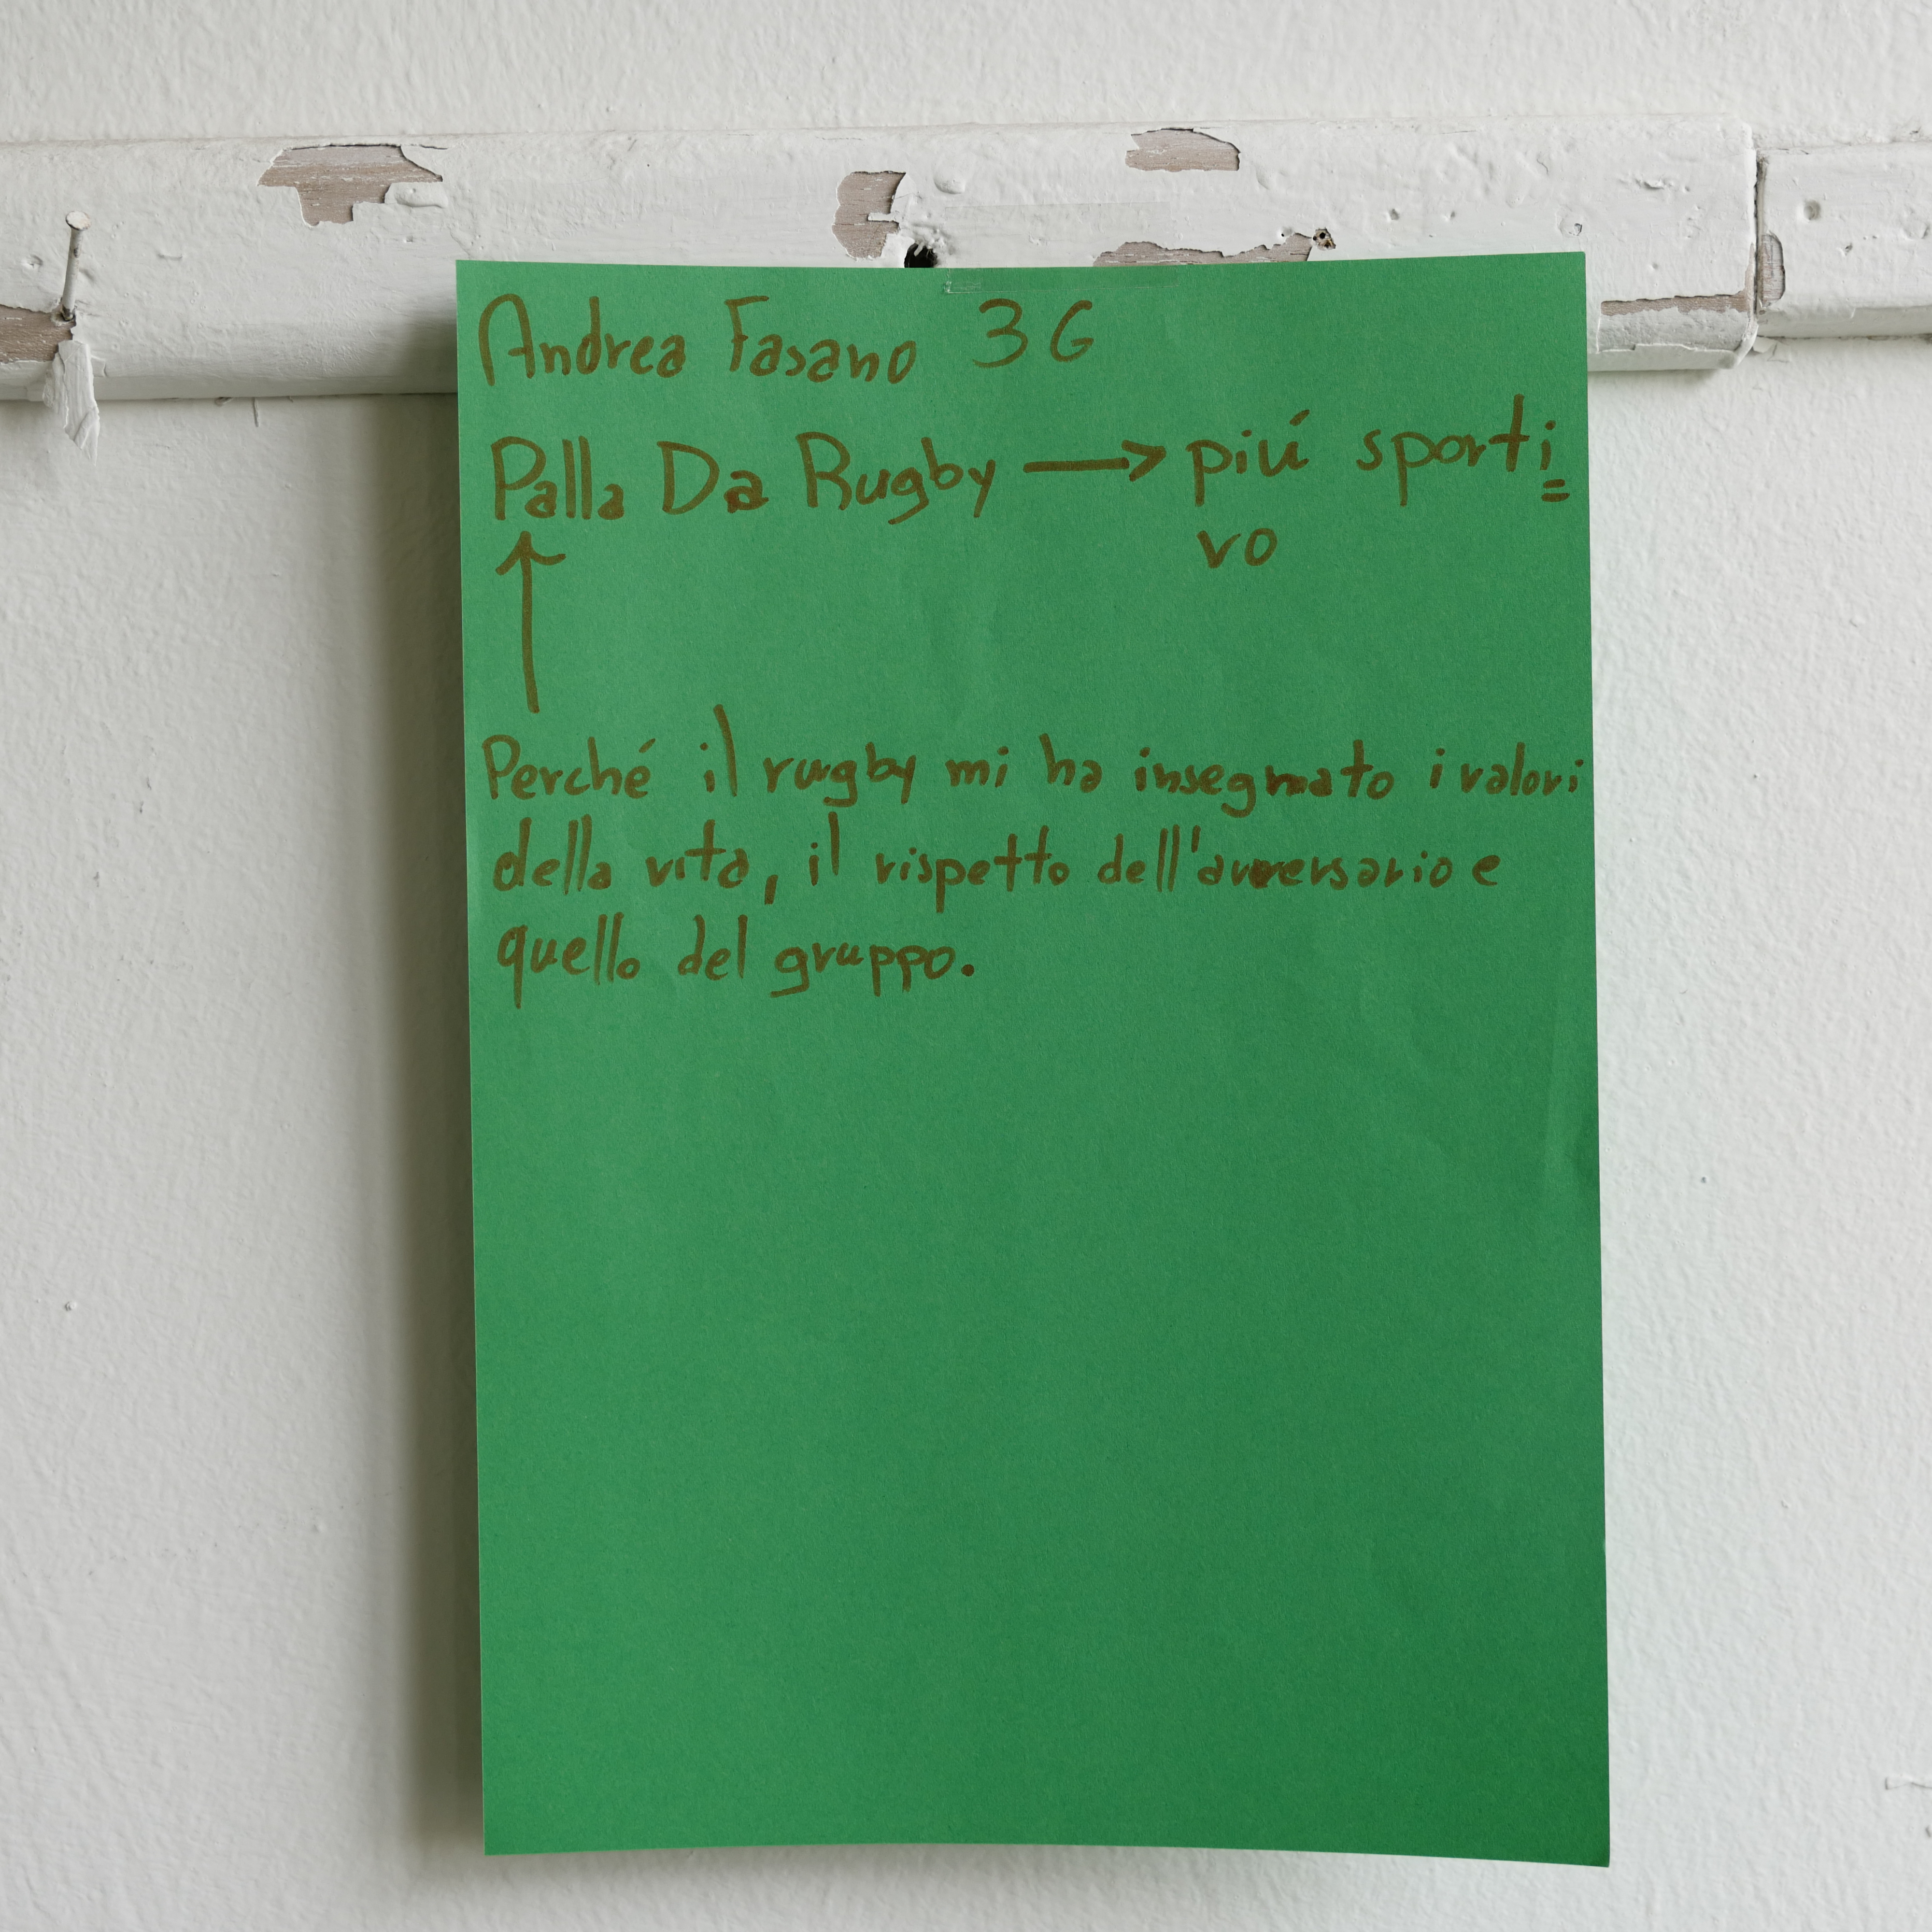 Andrea Fasano 3G
Palla Da Rugby → piú sporti=
vo
↑
Perché il rugby mi ha insegnato i valori
della vita, il rispetto dell'avversario e
quello del gruppo.